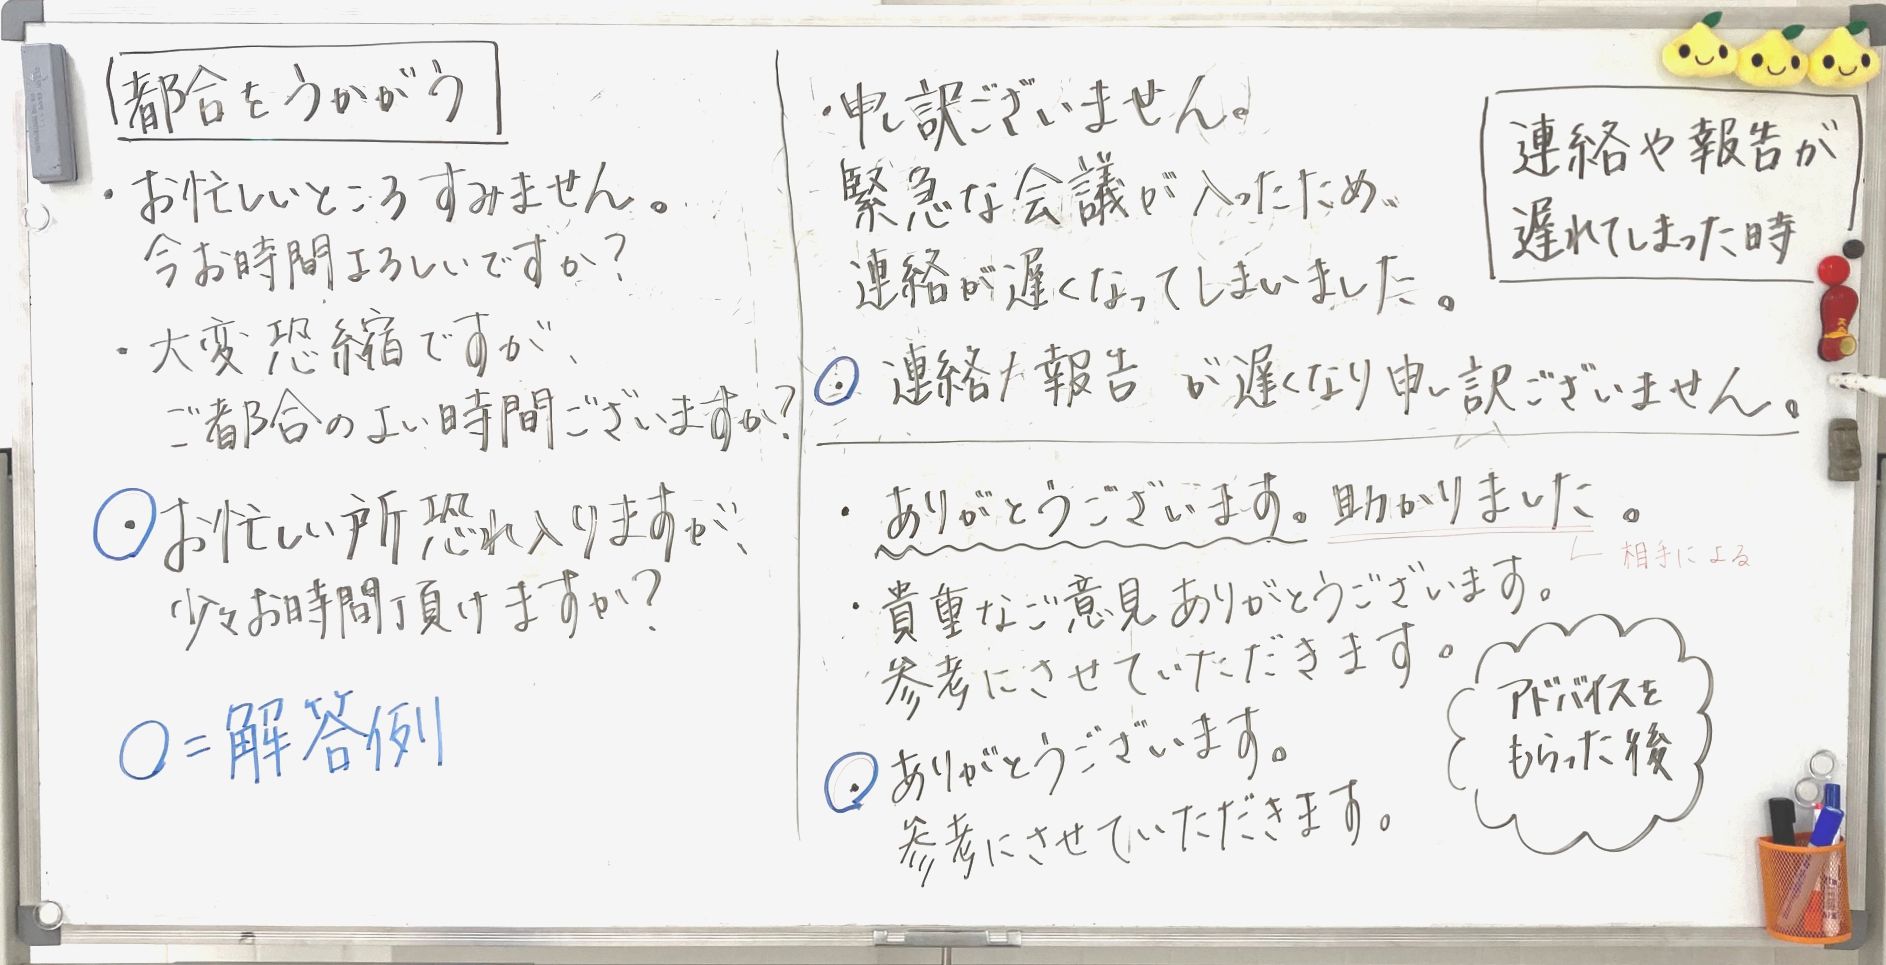 都合をうかがう
・お忙しいところすみません。
今お時間よろしいですか?
・大変恐縮ですが、
ご都合のよい時間ございますか?
・お忙しい所恐れ入りますが、
少々お時間頂けますか?
○=解答例
連絡や報告が
遅れてしまった時
・申し訳ございません。
緊急な会議が入ったため、
連絡が遅くなってしまいました。
・連絡/報告 が遅くなり申し訳ございません。
・ありがとうございます。助かりました。
相手による
・貴重なご意見ありがとうございます。
参考にさせていただきます。
・ありがとうございます。
参考にさせていただきます。
アドバイスを
もらった後